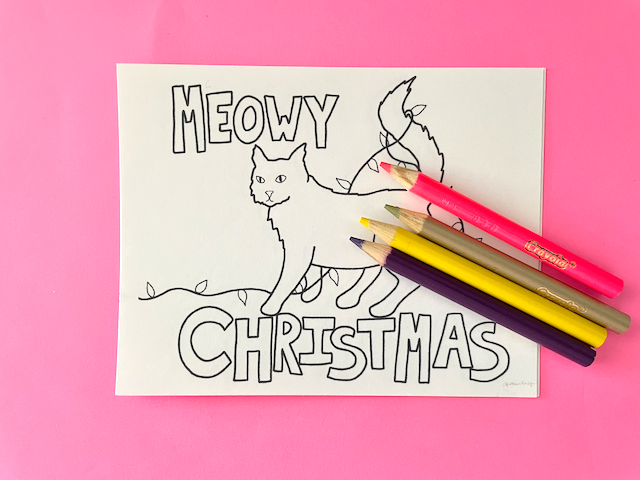 MEOWY
CHRISTMAS
Crayola